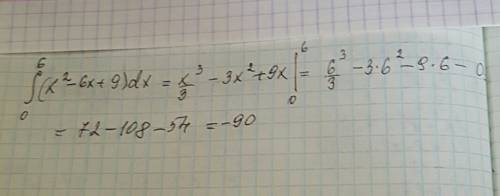 ∫₀⁶(x²-6x+9)dx = x³/3 - 3x²+9x |₀⁶ = 6³/3 - 3·6² - 9·6 - 0
= 72 - 108 - 54 = -90